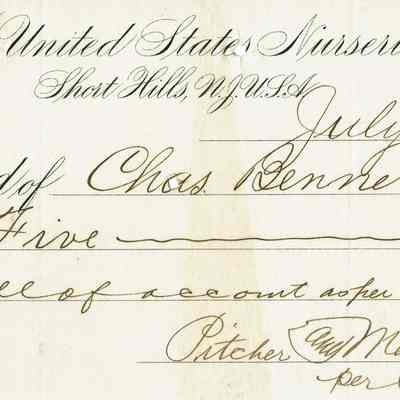 United States Nurseri
Short Hills, N.J. U.S.A
July
d of Chas. Benne
Five
ll of account as per
Pitcher & Ma
per